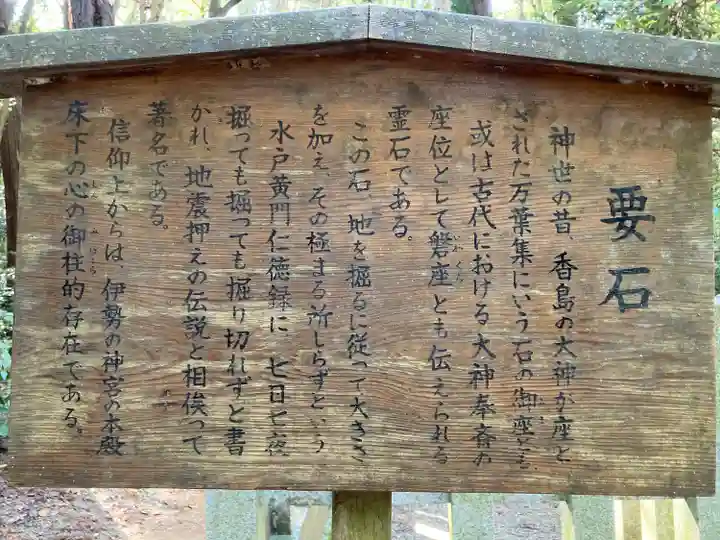 要石
神世の昔、香島の大神が座と
された万葉集にいう石の御座とも、
或は古代における大神奉斎の
座位として磐座とも伝えられる
霊石である。
この石、地を掘るに従って大きさ
を加え、その極まる所しらずという
水戸黄門仁徳録に、七日七夜
掘っても掘っても掘り切れずと書
かれ、地震押えの伝説と相俟って
著名である。
信仰上からは、伊勢の神宮の本殿
床下の心の御柱的存在である。